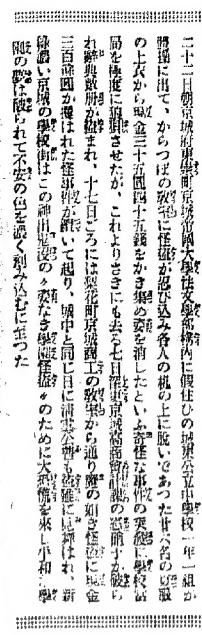 二十二日朝京城府東崇町京城帝國大學法文學部構內に假住ひの城東公立中學校一年一組が
體操に出て、からつぽの敎室に怪盜が忍び込み各人の机の上に脫いであつた廿六名の切服
の上衣から現金三十五圓四十五錢をかき集め姿を消したといふ奇怪な事件の突發に學校當
局を極度に狼狽させたが、これよりさきにも去る七日深更京城高商會計課の窓硝子が破ら
れ辭典數册が盜まれ、十七日ごろには梨花町京城商工の敎室から通り魔の如き怪盜に現金
三百餘圓が攫はれた怪事件が續いて起り、城中と同じ日に淸雲公普も盜難に見舞はれ、新
綠濃い京城の學校街はこの神出鬼沒の〃姿なき學園怪盜〃のために大恐慌を來し平和な學
園の夢は破られて不安の色を濃く刻み込むに至つた